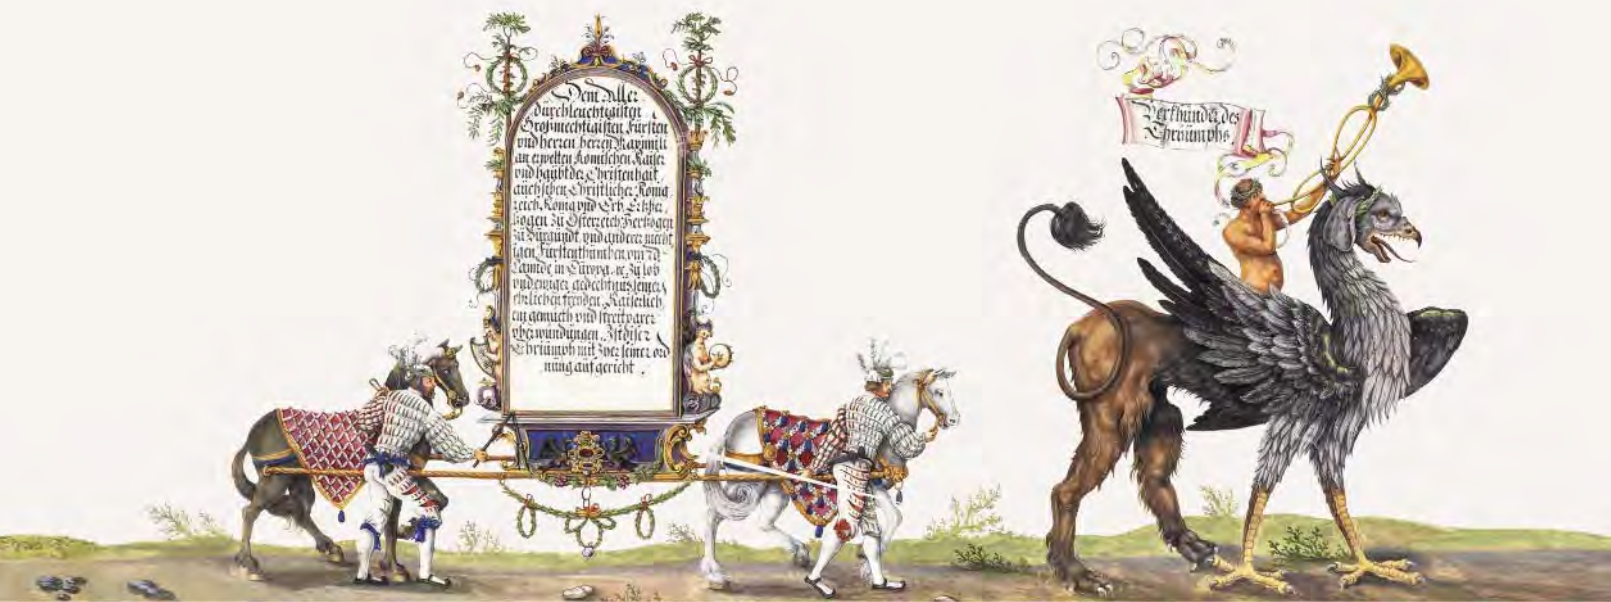 Dem Aller
durchleuchtigisten
Großmechtigisten Fürsten
vnd herren herren Maximili
an erwelten Romischen Kaiser
vnd haubt der Christenhait
auch siben Christlicher Konig
reich Konig vnd Erb Ertzher
tzogen zu Osterreich Hertzogen
zu Burgundt vnd anderer mecht
igen Fürstenthumben vnd
Lannde in Europa. ac. zu lob
vnd ewiger gedechtnus seiner
ehrlichen freyden Kaiserlich
en gemueth vnd streitparer
vberwundungen. Ist diser
Thriumph mit seiner ord
nung auf gericht.
Verkhünder des
Thriumphs